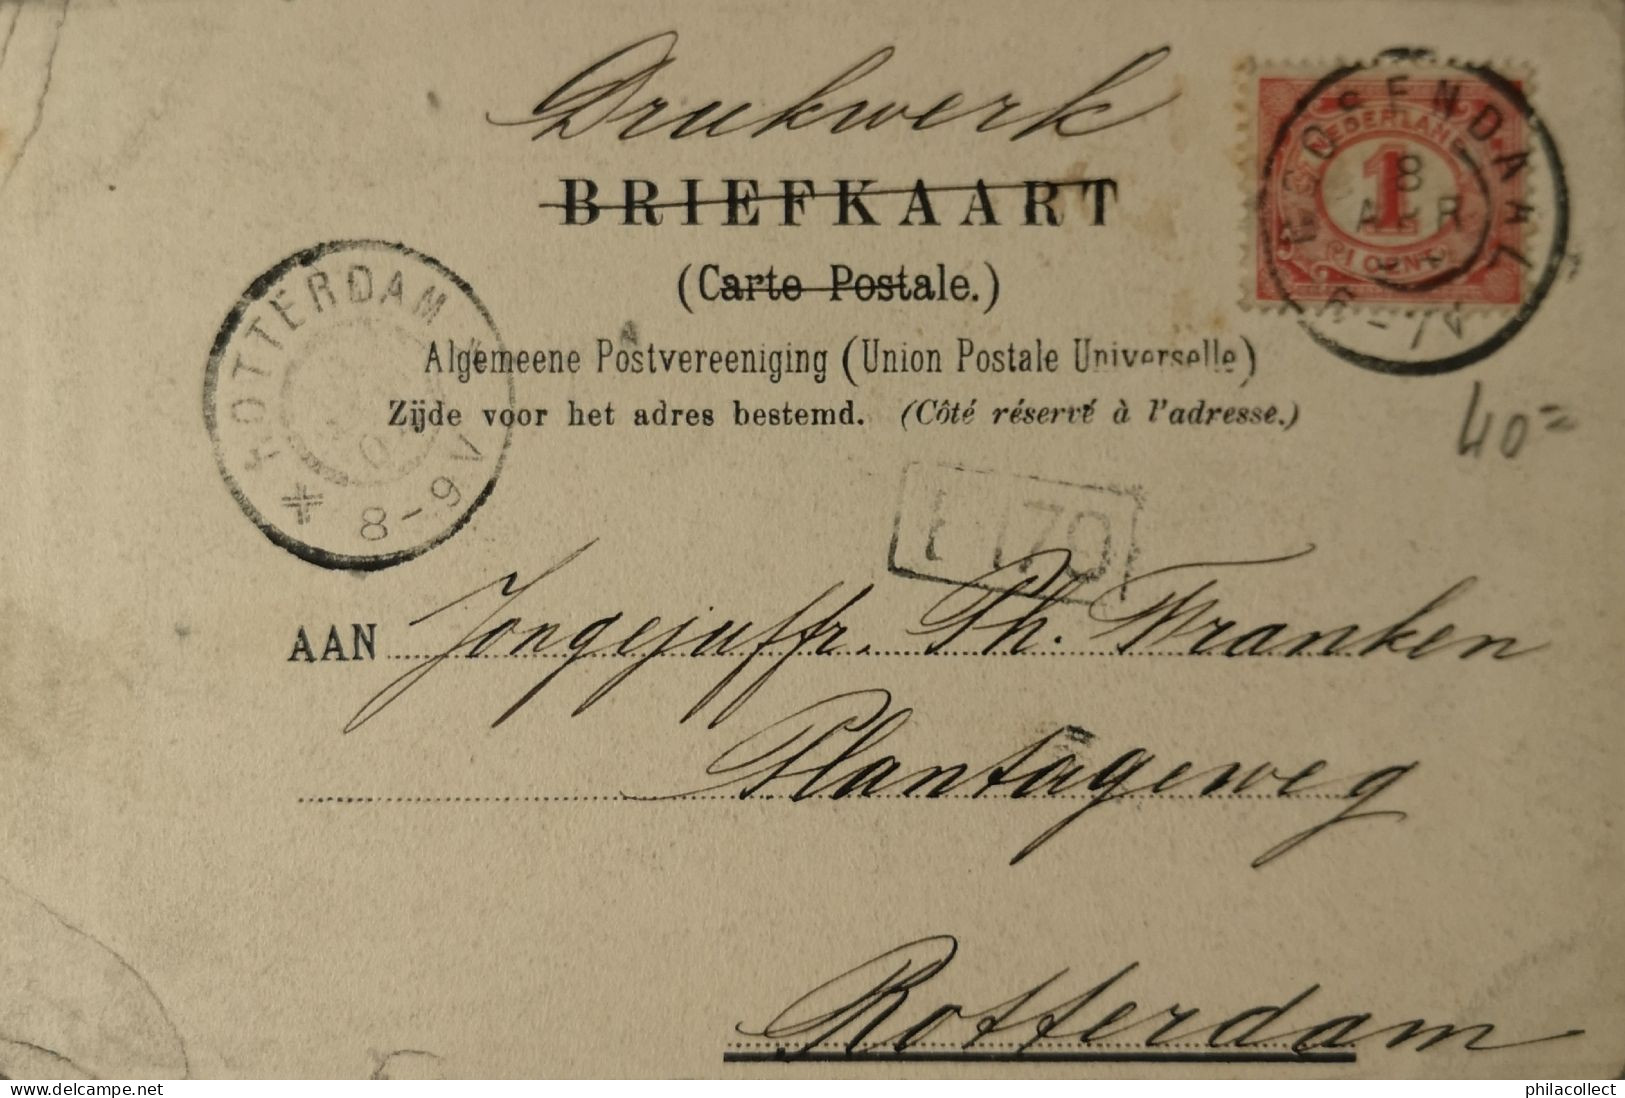 Drukwerk
BRIEFKAART
(Carte Postale.)
Algemeene Postvereeniging (Union Postale Universelle)
Zijde voor het adres bestemd. (Côté réservé à l'adresse.)
ROOSENDAAL
8
APR
NEDERLAND
1
1 CENT
ROTTERDAM
8-9V
40=
AAN Jongejuffr. Ph. Franken
Plantageweg
Rotterdam
delcampe.net
philacollect